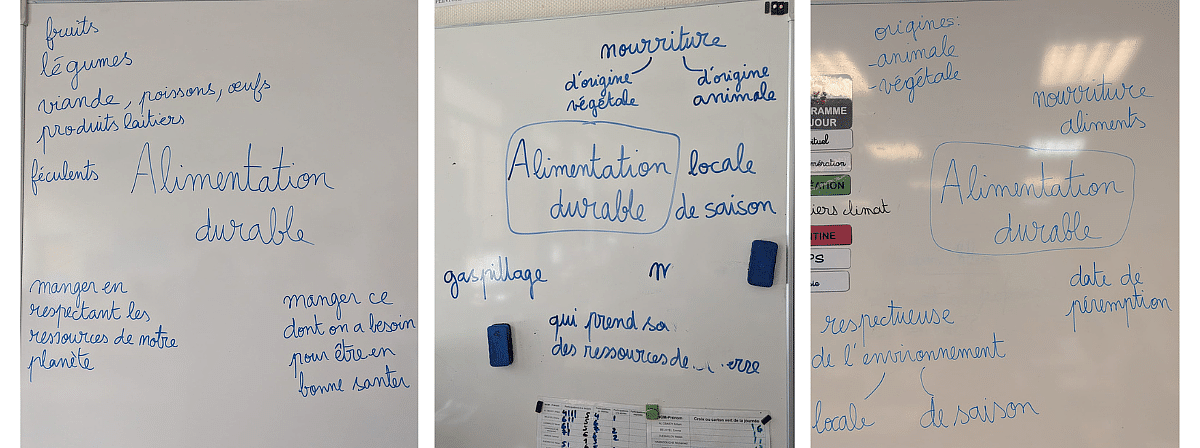 fruits
légumes
viande, poissons, œufs
produits laitiers
féculents
Alimentation
durable
manger en
respectant les
ressources de notre
planète
manger ce
dont on a besoin
pour être en
bonne santer
nourriture
d'origine
végétale
d'origine
animale
Alimentation
durable
locale
de saison
gaspillage
qui prend so
des ressources de
erre
origines:
-animale
-végétale
nourriture
aliments
RAMME
JOUR
ituel
mération
ATION
iers climat
TINE
PS
Alimentation
durable
date de
péremption
respectueuse
de l'environnement
locale
de saison